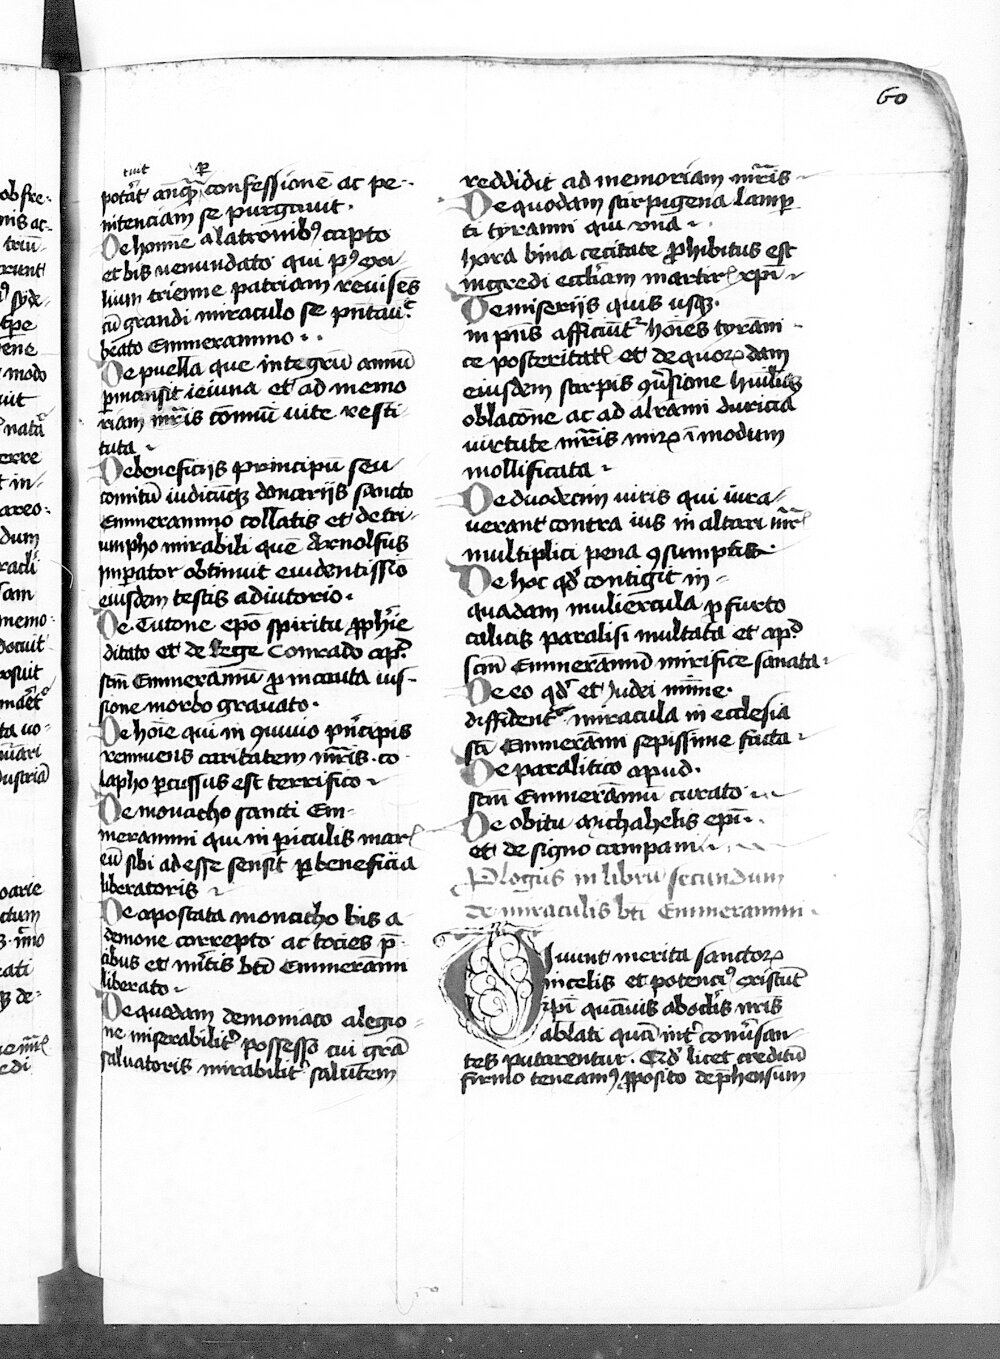 60
tuit
potat anqua confessione ac pe-
nitenciam se purgauit.
De homine a latronibꝰ capto
et bis uenundato qui pꝰ exi-
lium trienne patriam reuisēs
cū grandi miraculo se pn̄tauit
beato Emmerammo.
De puella que integrū annū
ꝑmansit ieiuna et ad memo
riam mr̄is com̄uni uite resti
tuta
De beneficijs principū seu
comitū iudicūqꝫ donarijs sancto
Emmerammo collatis et de tri-
umpho mirabili quē Arnolfus
imꝑator obtinuit euidentissīo
eiusdem testis adiutorio.
De Tutone epō spiritu ꝓphīe
ditato et de Rege Conrado apᵈ
scm̄ Emmerammū ꝓ incauta ius-
sione morbo grauato.
De hoīe qui in quiuio pn̄cipis
rennuens caritatem mr̄is co-
lapho ꝑcussus est terrifico
De monacho sancti Em-
merammi qui in ꝑiculis mar
eū sibi adesse sensit ꝑ beneficia
liberatoris
De apostata monacho bis a
demone correpto ac tocies p̄
cibus et mr̄tis bti Emmerāmi
liberato
De quodam demoniaco a legio-
ne miserabilitᵉʳ possesso cui grā
saluatoris mirabiliter salutem
reddidit ad memoriam mr̄is
De quodam stirpigena lamꝑ
ti tyranni qui vna
hora bina cecitate ꝓhibitus est
ingredi eccliam martir xpi
De miserijs quis usqꝫ
in pn̄s afficiunt hoīes tyranni
ce posteritat et de quorꝝdam
eiusdem stirpis ꝯuersione huiusqꝫ
oblacōne ac ad alrami duricia
uirtute mr̄is mirꝝ ī modum
mollificata
De duodecim uiris qui iura-
uerant contra ius in altari mr̄
multiplici pena ꝯsumptis
De hoc qd̄ contigit in
quadam muliercula ꝓ furto
calicis paralisi multata et apᵈ
scm̄ Emmerammū mirifice sanata
De eo qd̄ et Judei minīe
diffident miracula in ecclesia
sci Emmerāmi sepissime facta
De paralitico apud
scm̄ Emmerāmū curato
De obitu Michahelis epī
et de signo campani
Plogus in librū secundum
de miraculis bti Emmerammi
Uiuunt merita sanctorꝝ
in celis et potenciꝰ existūt
xpī quāuis ab oclis nr̄is
ablati quā intᵉʳ comūsan-
tes putarentur. Qd̄ licet creditū
firmo teneamꝰ ꝓposito dep̄hensum